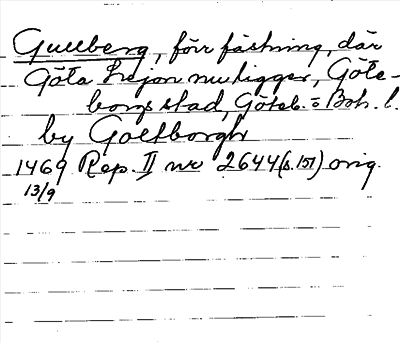 Gullberg, förr fästning, där
Göta Lejon nu ligger, Göte-
borgs stad, Göteb. o Boh. l.
by Goltborgh
1469 Rep. II nr 2644 (s. 151) orig.
13/9